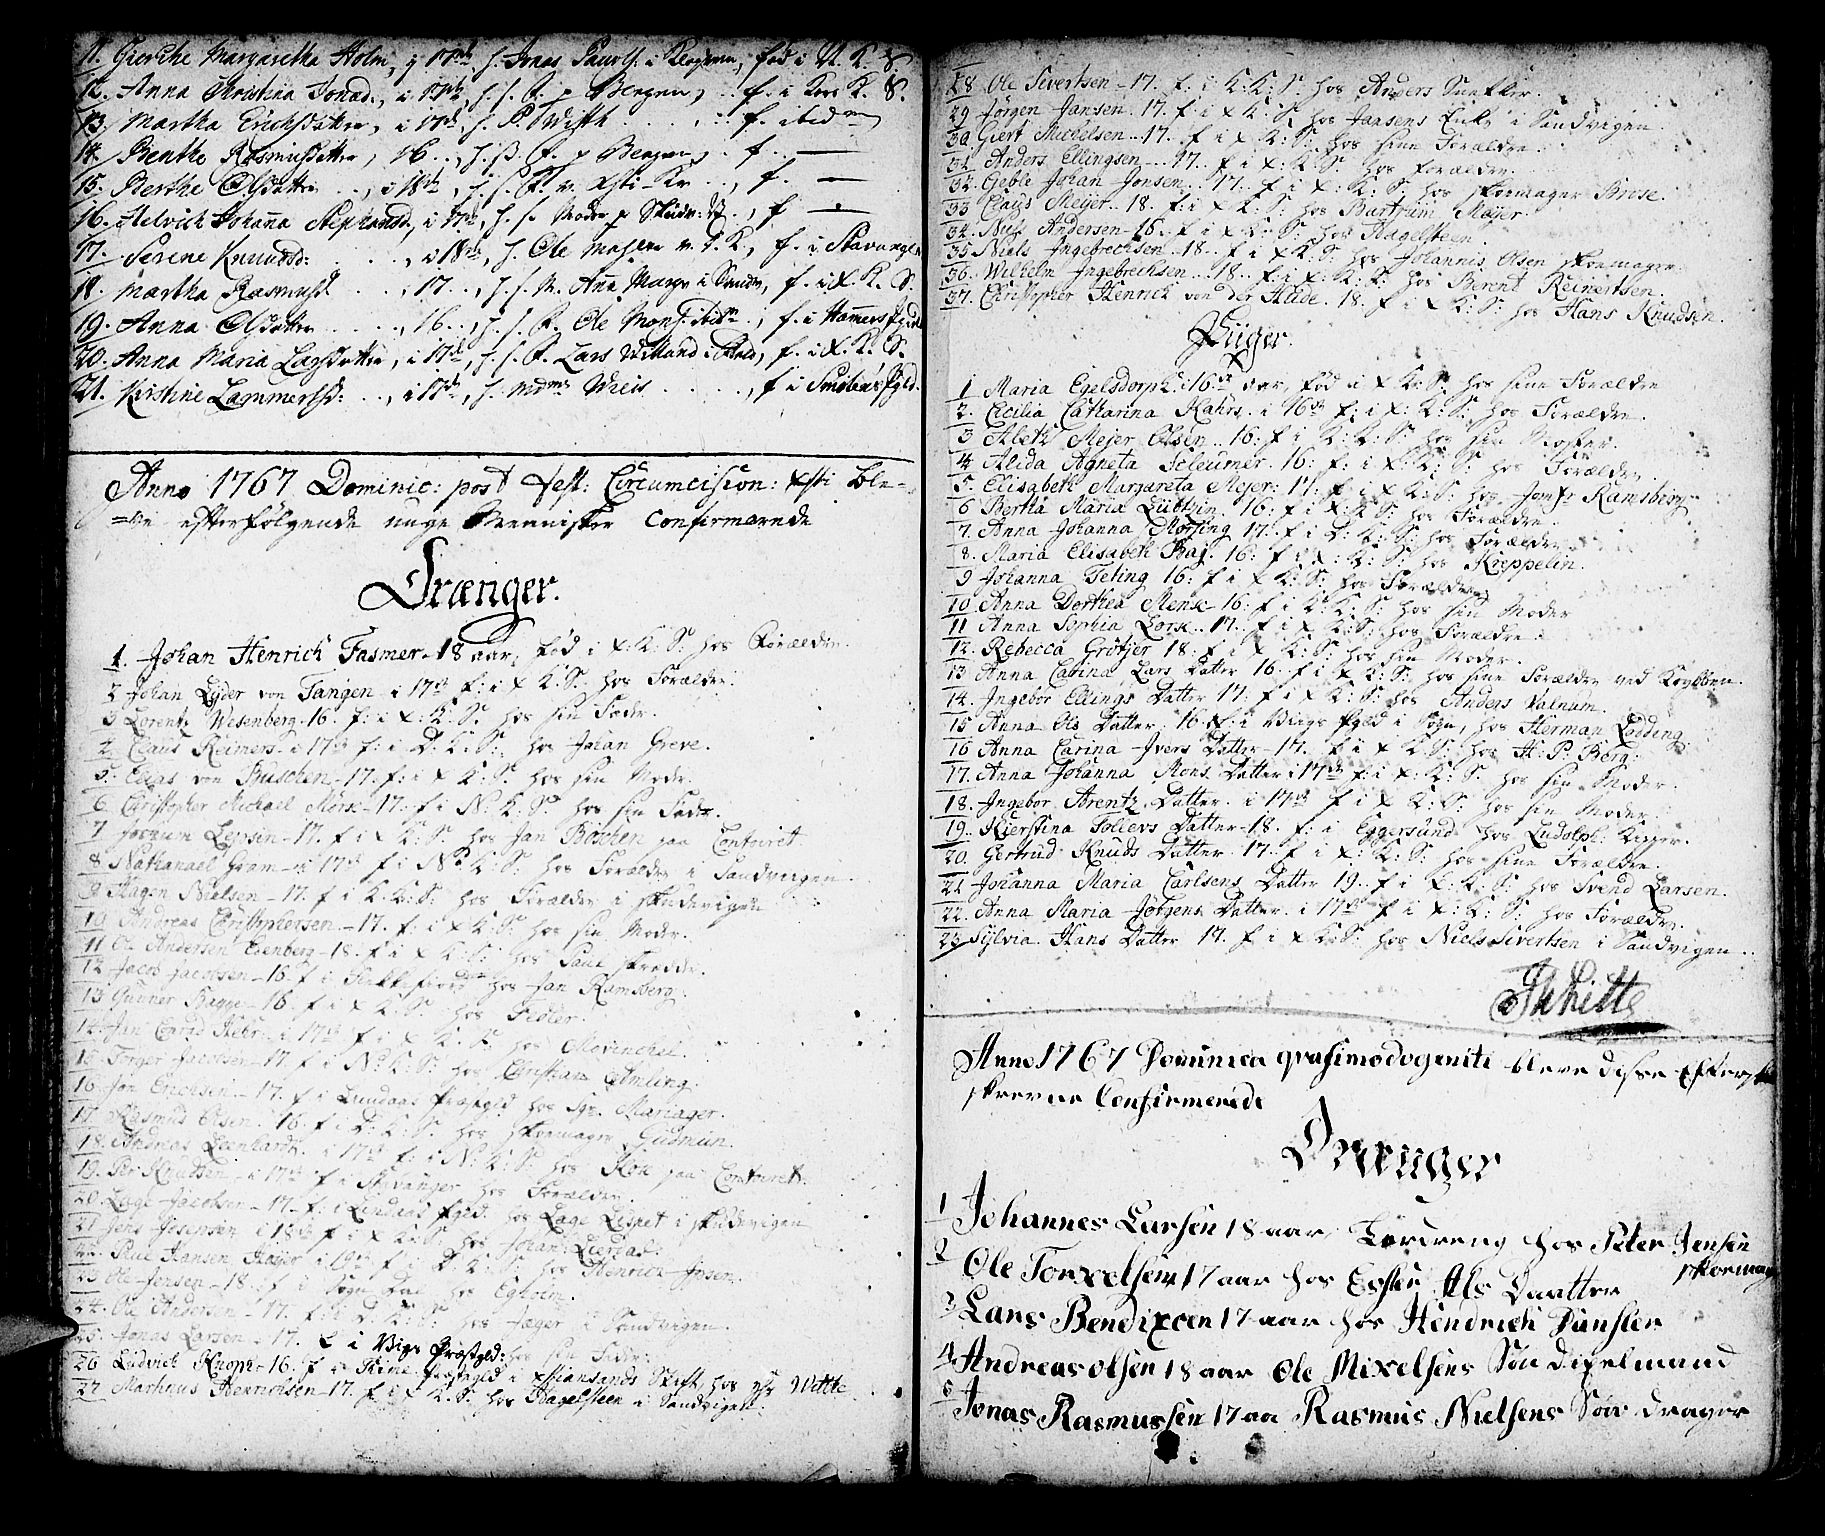 11. Gierthe Margaretha Holm, i 17de h. Jonas Paulss. i Klosteren, fød i N. K. S
12. Anna Christina Jonad., i 17de h. s. F. p Bergen, .. f. i Kors K. S.
13. Martha Erichsdatter, i 17de, h. P. Wisth .... f. ibidm
14. Benthe Rasmusdatter, 16.., h. s. F. p Bergen, . f. . —
15. Berthe Olsdatter .., i 18de, h. s. F. v. Xsti-Kr .., f. —
16. Helvich Johanna Stephansd., i 17de, h. s. Moder p Skudv:, f —
17. Serene Knudsd: .... i 18de, h. Ole Mahler v. X. K., f. i Stavanger
18. Martha Rasmusd. .. i 17.., h. s. M. Ane Margr i Sandv, f. i X. K. S.
19. Anna Olsdatter ...., 16.., h. s. F. Ole Mons. ibidm .., f. i Hammers Pgield
20. Anna Maria Larsdatter, i 17de, h. s. F. Lars Willand i , f. i X. K. S.
21. Kirstine Lammersd: .., i 17de, h. Mdme Wieis ...., f i Smolens Pgld.
Anno 1767 Dominic: post Fest: Circumcision: Xsti ble-
=ve efterfølgende unge Mennisker Confirmerede
Drænger.
1. Johan Henrich Fasmer - 18 aar, fød i X: K: S: hos Forældre.
2 Johan Lyder von Tangen - i 17de f: i X K: S: hos Forældre.
3 Lorentz Wesenberg - 16. f: i X: K: S. hos sin Fader.
4 Claus Reimers - i 17de f: i D. K: S: hos Johan Greve.
5. Elias von Buschen - 17. f: i X K: S. hos sin Moder.
6 Christopher Michael Mørse - 17. f i N. K: S: hos sin Fader.
7 Jochum Lepsin - 17. f i X K: S: hos Jan Böschen paa Contoiret.
8 Nathanael Gram - i 17de f i N. K: S: hos Forældre i Sandvigen.
9 Hagen Nielsen - 17. f i K. K: S: hos Forældre i Skudevigen
10 Andreas Christophersen - 17. f: i X K: S: hos sin Moder.
11 Ole Andersen Eenberg - 18. f i X K: S: hos Paul Skrædder.
12 Jacob Jacobsen - 16. f i hos Jan Ramsberg.
13 Gunner Bagge - 16. f i X K: S: hos Fedler.
14. Jan Conrad Hebr. i 17de f i X. K. S. hos Morinchel.
15 Torger Jacobsen - 17. f i N: K: S: hos Christian Amling.
16. Jon Erichsen - 17. f i Lundaas Præstgld hos Sgr. Mariager.
17 Rasmus Olsen. 16. f i D: K: S. hos Skoemager Gudmun.
18. Andreas Leenhardt. i 17de f: i N: K: S: hos Kok paa Contoiret.
19. Per Knudsen - i 17de f i Stavanger hos Forældre.
20 Lage Jacobsen - 17. f: i Lindaas Pgld. hos Lage Lisnet i Skudevigen
21 Jens Jesensen i 18de f i X K: S: hos Johan Lierdal.
22. Poul Hansen Høyer i 19de f i D. K: S: hos Henrich Jysen.
23 Ole Jensen - 18. f i Sogn Dal hos Egholm.
24. Ole Andersen - 17. f: i D. K: S: hos Jæger i Sandvigen.
25. Jonas Larsen - 17. f i Vigs Præstgld: hos sin Fader.
26 Ludvich Knoph - 16. f i Præstegld i Xstiansands Stift hos Wette
27 Martinus Henriksen - 17. f i X K: S: hos Hagelsteen i Sandvigen.
28 Ole Sivertsen - 17. f: i K: K: S: hos Anders Snekker.
29 Jørgen Jansen. 17. f i X K: S: hos Jansens Enke i Sandvigen
30 Giert Michelsen .. 17. f i X K: S: hos sine Forældre
31 Anders Ellingsen ... 17. f i X: K: S: hos Forældre.
32. Geble Johan Jonsen .. 17. f i X: K: S: hos Skoemager Brose.
33 Claus Meyer. 18. f: i X K: S: hos Bartrum Meyer.
34. Nils Andersen - 16. f i X K: S: hos Hagelsteen.
35 Niels Ingebrechsen. 18. f i X K: S: hos Johannis Olsen Skoemager.
36. Wilhelm Ingebrechsen ... 18. f: i X: K: S: hos Berent Reinertsen.
37. Christopher Henrich von der Hude. 18. f i X K: S: hos Hans Knudsen.
Piiger.
1 Maria Egelsdorph. i 16de aar, fød i X K: S: hos sine Forældre
2. Cicilia Catharina Kahrs. i 16de f: i X: K: S: hos Forældre.
3 Aleth Mejer Olsen .. 16: f i K: K: S: hos sin Moster.
4 Alida Agneta Scleumer. 16: f: i X: K: S: hos Forældre.
5. Elisabeth Margareta Mejer: 17. f i X K: S: hos Jomfr Ramsberg
6 Bertha Maria Lüttzin. 16: f i X: K: S: hos Forældre.
7. Anna Johanna Morsing 17. f i D: K: S: hos Forældre
8. Maria Elisabeth Baj. 16: f i X: K: S: hos Kreppelin.
9 Johanna Feting 16: f i X K: S: hos Forældre
10 Anna Dorthea Mense 16. f i K: K: S: hos sin Moder
11 Anna Sophia Lorse .. 17. f i X K: S: hos Forældre.
12. Rebecca Grötjer 18: f i X K: S: hos sin Moder.
13 Anna Carina Lars Datter 16. f i X K: S: hos sine Forældre ved Kovebøen.
14. Ingebor Ellings Datter 17. f i X K: S: hos Anders Valnum.
15 Anna Ols Datter. 16 f: i Viigs Pgld i Sogn, hos Herman Lödding
16 Anna Carina Ivers Datter - 17. f i X K: S: hos H. P. Berg.
17. Anna Johanna Mons Datter i 17de f: i X: K: S: hos sin Moder.
18. Ingebor Arentz Datter. i 17de f i X K: S: hos sin Moder.
19. Kierstina Tolievs Datter - 18. f: i Eggersund hos Ludolph: Kisper.
20. Gertrud Knuds Datter 17. f i X: K: S: hos sine Forældre.
21 Johanna Maria Carlsens Datter 19. f i X: K: S: hos Svend Larsen.
22. Anna Maria Jörgens Datter. i 17de f i X: K: S: hos Forældre.
23 Sylvia Hans Datter 17. f i X K: S: hos Niels Sivertsen i Sandvigen ..
Anno 1767 Dominica qvasimodogeniti bleve disse Efter
skrevne Confirmerede
Drænger
1 Johannes Larsen 18 aar, Lærdreng hos Peter Jensen
Skoemag
2 Ole Torxelsen 17 aar hos Als Daatter
3 Lars Bendixcen 17 aar hos Hendrich Dansler
4 Andreas Olsen 18 aar Ole Mixelsens Søn Dixelmand
5 Jonas Rasmussen 17 aa Rasmus Nielsens Søn drager